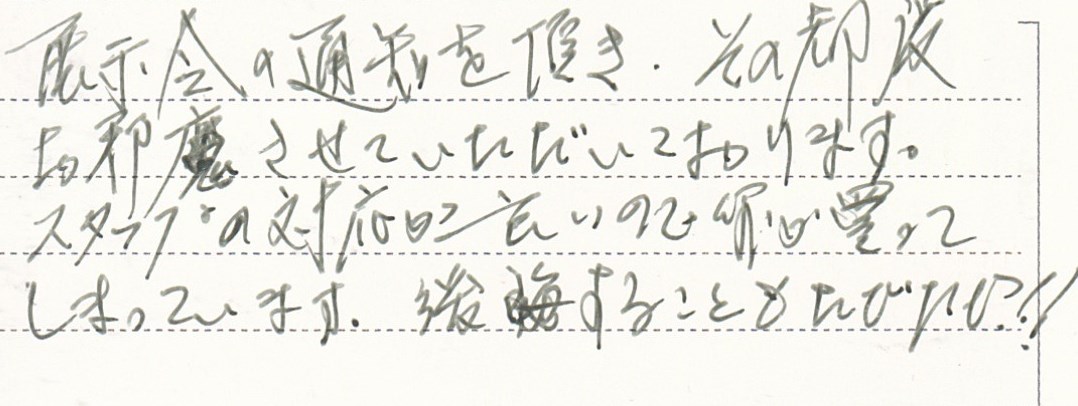 展示会の通知を頂き、その都度
お邪魔させていただいております。
スタッフの対応 良いので 買って
しまっています。後悔することもたびたび?!